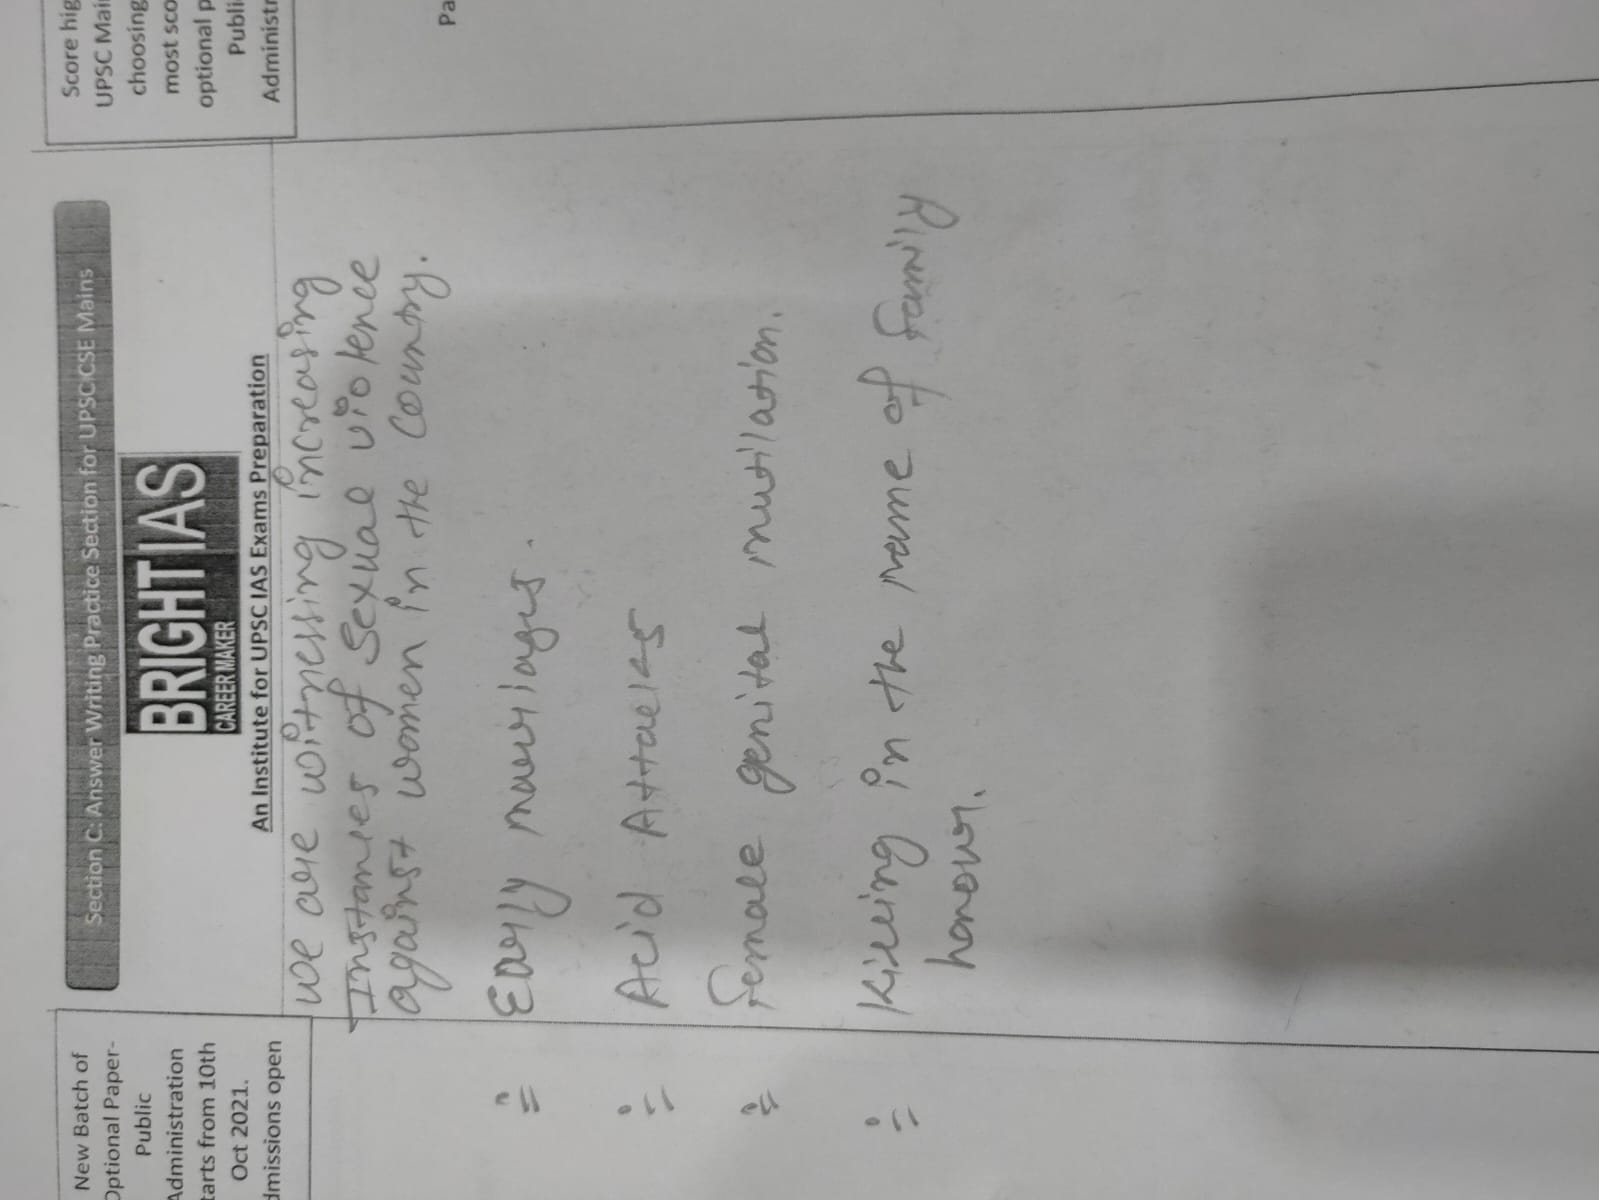 Section C: Answer Writing Practice Section for UPSC CSE Mains
New Batch of
Optional Paper-
Public
Administration
tarts from 10th
Oct 2021.
dmissions open
BRIGHT IAS
CAREER MAKER
An Institute for UPSC IAS Exams Preparation
Score hig
UPSC Mai
choosing
most sco
optional p
Publi
Administr
Pa
we are witnessing increasing
Instances of Sexual violence
against women in the Country.
Early marriages.
Acid Attacks
female genital mutilation.
Killing in the name of family
honour.